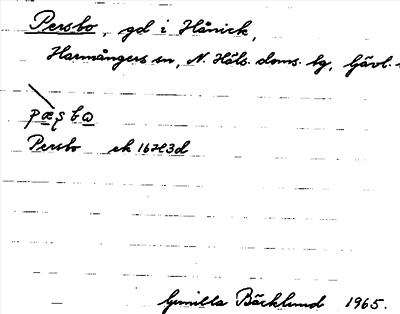 Persbo, gd i Hånick,
Harmångers sn, N. Häls. doms. tg, Gävl.
Persbo ek 16H3d
Gunilla Bäcklund 1965.